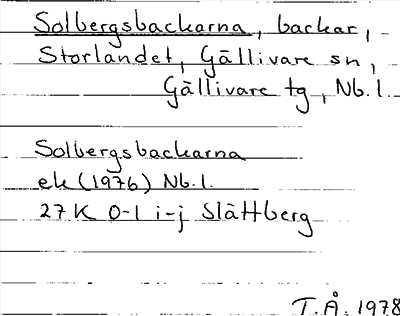 Solbergsbackarna, backar,
Storlandet, Gällivare sn,
Gällivare tg, Nb.l.
Solbergsbackarna
ek (1976) Nb.l.
27 K 0-1 i-j Slättberg
T.Å. 1978